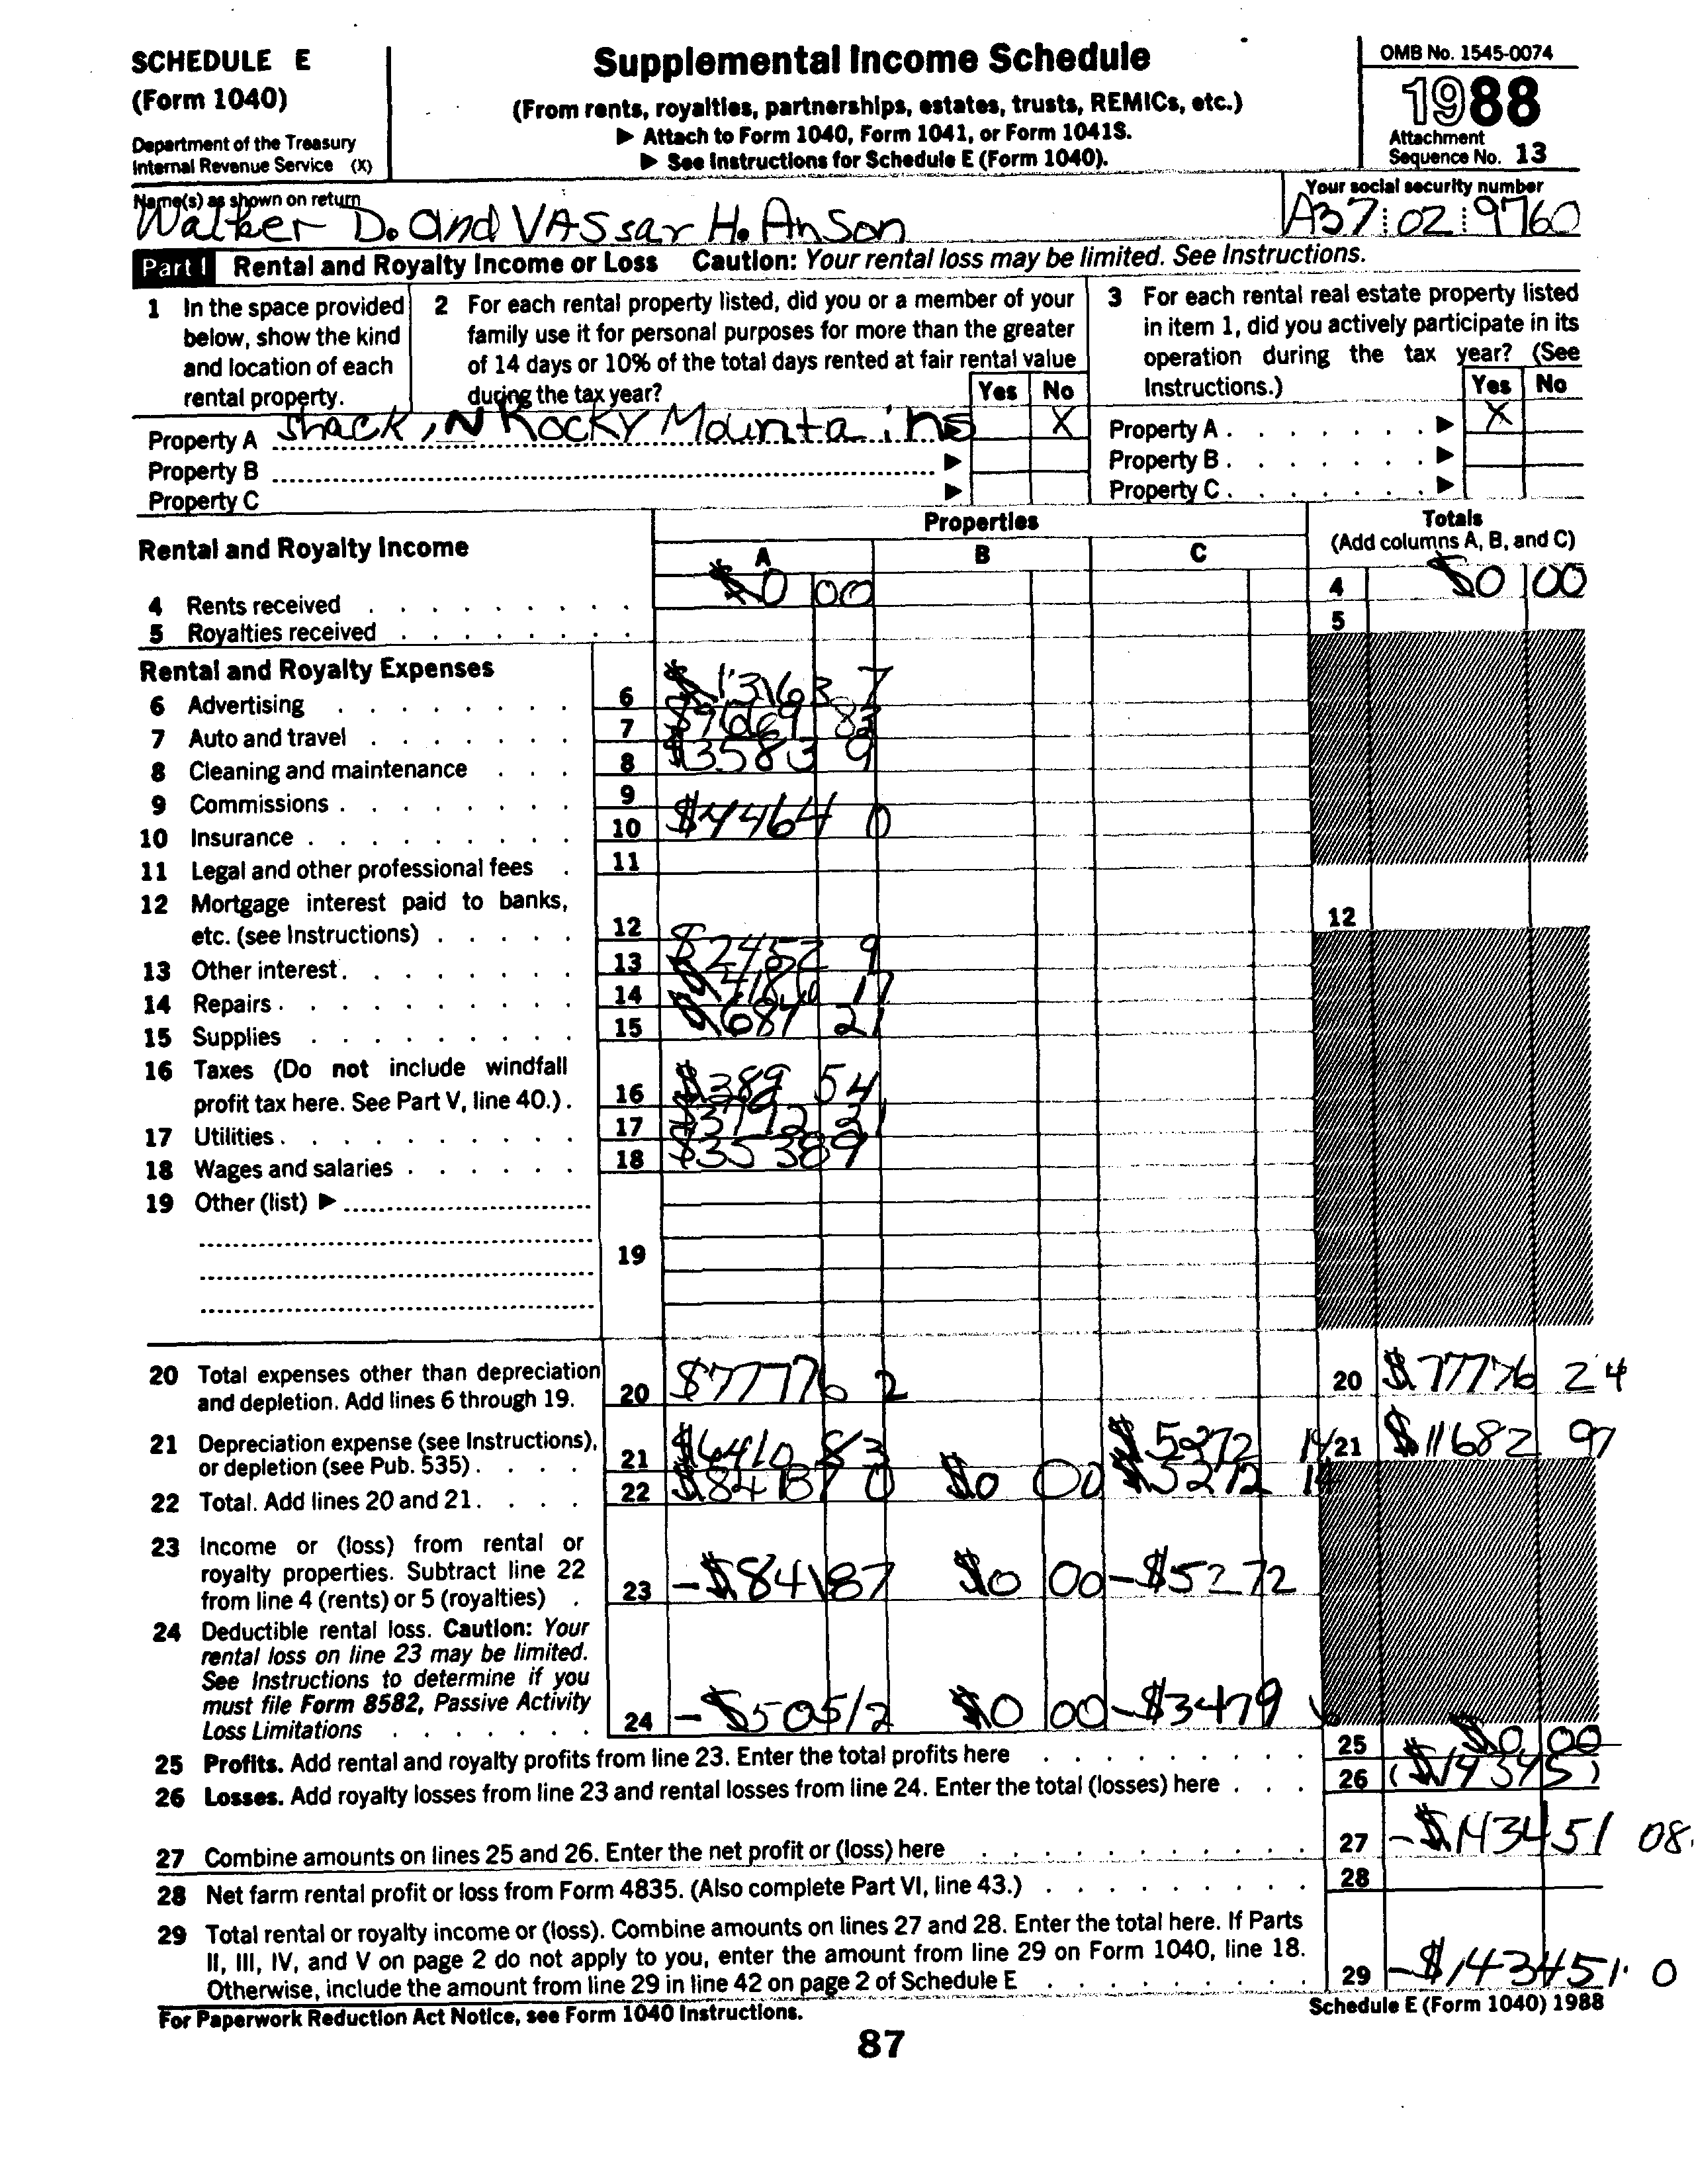 SCHEDULE E
(Form 1040)
Department of the Treasury
Internal Revenue Service (X)
Supplemental Income Schedule
(From rents, royalties, partnerships, estates, trusts, REMICs, etc.)
▶ Attach to Form 1040, Form 1041, or Form 1041S.
▶ See Instructions for Schedule E (Form 1040).
OMB No. 1545-0074
1988
Attachment
Sequence No. 13
Name(s) as shown on return
Walker D. and VASsar H. Anson
Your social security number
A37 02 9760
Part I Rental and Royalty Income or Loss Caution: Your rental loss may be limited. See Instructions.
1 In the space provided
below, show the kind
and location of each
rental property.
2 For each rental property listed, did you or a member of your
family use it for personal purposes for more than the greater
of 14 days or 10% of the total days rented at fair rental value
during the tax year?
Yes No
3 For each rental real estate property listed
in item 1, did you actively participate in its
operation during the tax year? (See
Instructions.)
Yes No
Property A Shack iN Rocky Mountains ▶ X
Property B ▶
Property C ▶
Property A ▶ X
Property B ▶
Property C ▶
Rental and Royalty Income
Properties
A B C
Totals
(Add columns A, B, and C)
4 Rents received $0 00 4 $0 00
5 Royalties received 5
Rental and Royalty Expenses
6 Advertising 6 $13163 7
7 Auto and travel 7
8 Cleaning and maintenance 8 $3583 9
9 Commissions 9
10 Insurance 10 $4464 0
11 Legal and other professional fees 11
12 Mortgage interest paid to banks,
etc. (see Instructions) 12 12
13 Other interest 13 $2452 9
14 Repairs 14 17
15 Supplies 15 $687 21
16 Taxes (Do not include windfall
profit tax here. See Part V, line 40.) 16 $389 54
17 Utilities 17 $3792 31
18 Wages and salaries 18 $35389
19 Other (list) ▶
19
20 Total expenses other than depreciation
and depletion. Add lines 6 through 19. 20 $77776 2 20 $77776 24
21 Depreciation expense (see Instructions),
or depletion (see Pub. 535) 21 $6410 83 $5272 14 21 $11682 97
22 Total. Add lines 20 and 21 22 $84187 0 $0 00 $5272 14
23 Income or (loss) from rental or
royalty properties. Subtract line 22
from line 4 (rents) or 5 (royalties) 23 -$84187 $0 00 -$5272
24 Deductible rental loss. Caution: Your
rental loss on line 23 may be limited.
See Instructions to determine if you
must file Form 8582, Passive Activity
Loss Limitations 24 -$50512 $0 00 -$3479
25 Profits. Add rental and royalty profits from line 23. Enter the total profits here 25 $0 00
26 Losses. Add royalty losses from line 23 and rental losses from line 24. Enter the total (losses) here 26 ($14345)
27 Combine amounts on lines 25 and 26. Enter the net profit or (loss) here 27 -$143451 08
28 Net farm rental profit or loss from Form 4835. (Also complete Part VI, line 43.) 28
29 Total rental or royalty income or (loss). Combine amounts on lines 27 and 28. Enter the total here. If Parts
II, III, IV, and V on page 2 do not apply to you, enter the amount from line 29 on Form 1040, line 18.
Otherwise, include the amount from line 29 in line 42 on page 2 of Schedule E 29 -$143451.0
For Paperwork Reduction Act Notice, see Form 1040 Instructions.
Schedule E (Form 1040) 1988
87